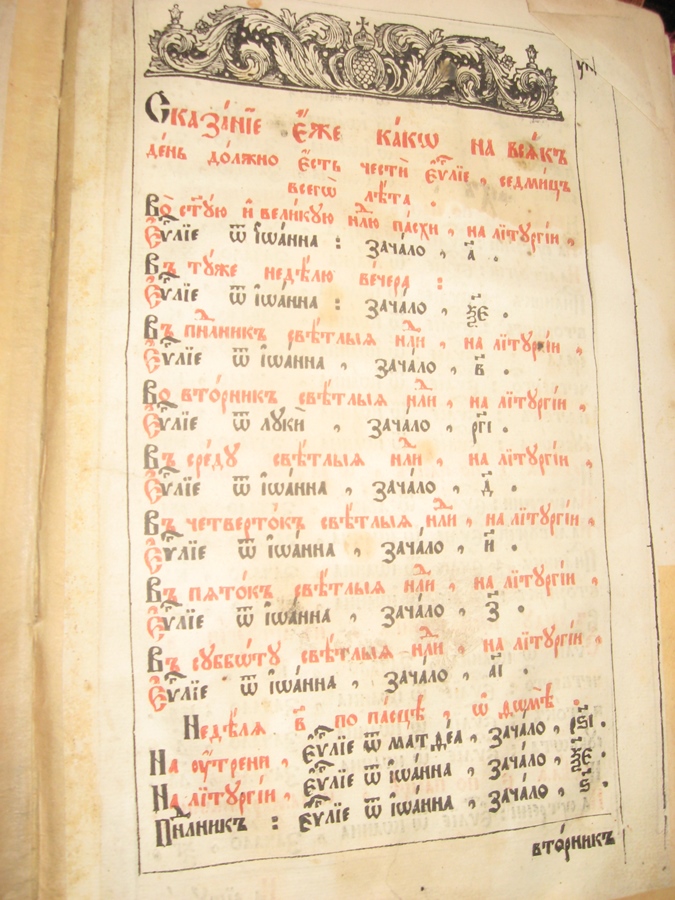 Сказа́нїе є҆́же ка́кѡ на всѧ́къ
де́нь до́лжно є҆́сть честѝ є҆ѵⷢ҇лїе , седми́цъ
всегѡ̀ лѣ́та .
Во̀ ст҃ꙋ́ю и҆ вели́кꙋю нлⷣю па́схи , на лїтꙋргі́и ,
Є҆ѵⷢ҇лїе ѿ і҆ѡа́нна : зача́ло , а҃ .
Въ тꙋ́же недѣ́лю ве́чера :
Є҆ѵⷢ҇лїе ѿ і҆ѡа́нна : зача́ло , ѯ҃є .
Въ пнⷣлникъ свѣ́тлыѧ нлⷣи , на лїтꙋргі́и ,
Є҆ѵⷢ҇лїе ѿ і҆ѡа́нна , зача́ло , в҃ .
Во вто́рникъ свѣ́тлыѧ нлⷣи , на лїтꙋргі́и ,
Є҆ѵⷢ҇лїе ѿ лꙋкѝ , зача́ло , рг҃і .
Въ сре́дꙋ свѣ́тлыѧ нлⷣи , на лїтꙋргі́и ,
Є҆ѵⷢ҇лїе ѿ і҆ѡа́нна , зача́ло , д҃ .
Въ четверто́къ свѣ́тлыѧ нлⷣи , на лїтꙋргі́и ,
Є҆ѵⷢ҇лїе ѿ і҆ѡа́нна , зача́ло , и҃ .
Въ пѧто́къ свѣ́тлыѧ нлⷣи , на лїтꙋргі́и ,
Є҆ѵⷢ҇лїе ѿ і҆ѡа́нна , зача́ло , з҃ .
Въ сꙋббѡ́тꙋ свѣ́тлыѧ нлⷣи , на лїтꙋргі́и ,
Є҆ѵⷢ҇лїе ѿ і҆ѡа́нна , зача́ло , а҃і .
Недѣ́лѧ в҃ по па́сцѣ , ѡ҆ ѳѡмѣ̀ .
На ᲂу҆́трени , є҆ѵⷢ҇лїе ѿ матѳе́а , зача́ло , рѕ҃і .
На лїтꙋргі́и , є҆ѵⷢ҇лїе ѿ і҆ѡа́нна , зача́ло , ѯ҃є .
Пнⷣлникъ : є҆ѵⷢ҇лїе ѿ і҆ѡа́нна , зача́ло , ѕ҃ .
вто́рникъ